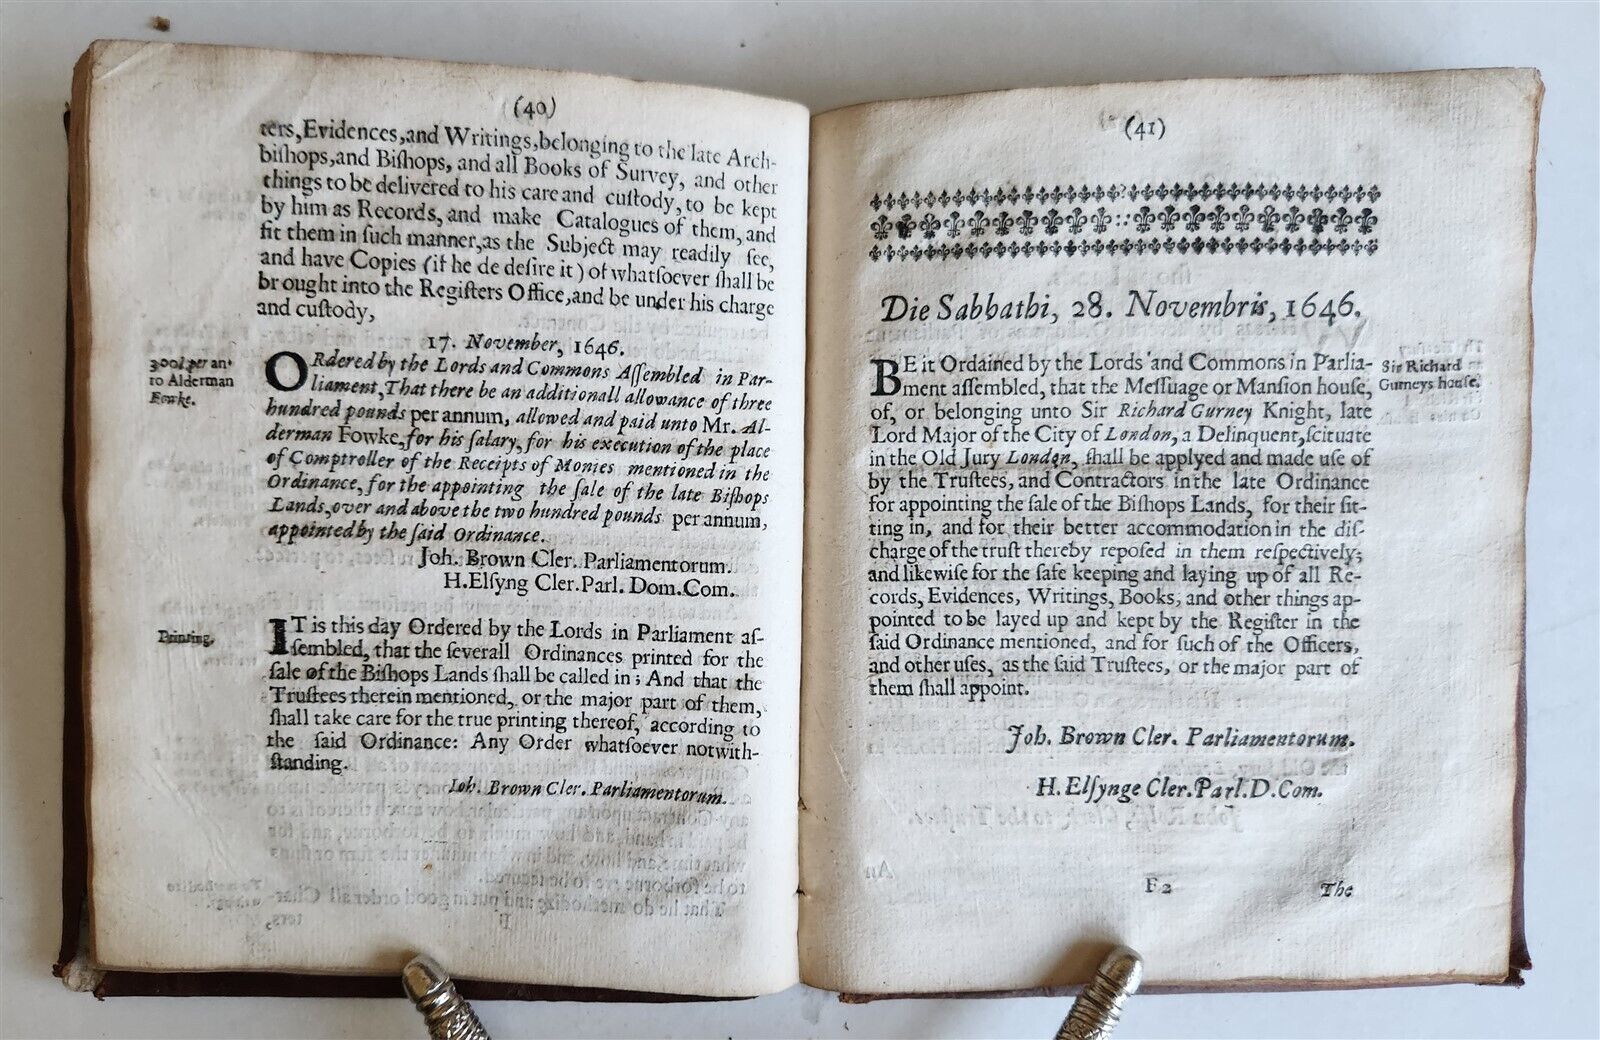 (40)
ters, Evidences, and Writings, belonging to the late Arch-
biſhops, and Biſhops, and all Books of Survey, and other
things to be delivered to his care and cuſtody, to be kept
by him as Records, and make Catalogues of them, and
fit them in ſuch manner, as the Subject may readily ſee,
and have Copies (if he de deſire it) of whatſoever ſhall be
br ought into the Regiſters Office, and be under his charge
and cuſtody,
17. November, 1646.
300l. per an.
to Alderman
Fowke.
ORdered by the Lords and Commons Aſſembled in Par-
liament, That there be an additionall allowance of three
hundred pounds per annum, allowed and paid unto Mr. Al-
derman Fowke, for his ſalary, for his execution of the place
of Comptroller of the Receipts of Monies mentioned in the
Ordinance, for the appointing the ſale of the late Biſhops
Lands, over and above the two hundred pounds per annum,
appointed by the ſaid Ordinance.
Joh. Brown Cler. Parliamentorum.
H. Elſyng Cler. Parl. Dom. Com.
Printing.
IT is this day Ordered by the Lords in Parliament aſ-
ſembled, that the ſeverall Ordinances printed for the
ſale of the Biſhops Lands ſhall be called in; And that the
Truſtees therein mentioned, or the major part of them,
ſhall take care for the true printing thereof, according to
the ſaid Ordinance: Any Order whatſoever notwith-
ſtanding.
Joh. Brown Cler. Parliamentorum.
(41)
Die Sabbathi, 28. Novembris, 1646.
BE it Ordained by the Lords and Commons in Parlia-
ment aſſembled, that the Meſſuage or Manſion houſe,
of, or belonging unto Sir Richard Gurney Knight, late
Lord Major of the City of London, a Delinquent, ſcituate
in the Old Jury London, ſhall be applyed and made uſe of
by the Truſtees, and Contractors in the late Ordinance
for appointing the ſale of the Biſhops Lands, for their ſit-
ting in, and for their better accommodation in the diſ-
charge of the truſt thereby repoſed in them reſpectively;
and likewiſe for the ſafe keeping and laying up of all Re-
cords, Evidences, Writings, Books, and other things ap-
pointed to be layed up and kept by the Regiſter in the
ſaid Ordinance mentioned, and for ſuch of the Officers,
and other uſes, as the ſaid Truſtees, or the major part of
them ſhall appoint.
Sir Richard
Gurneys houſe.
Joh. Brown Cler. Parliamentorum.
H. Elſynge Cler. Parl. D. Com.
F 2
The